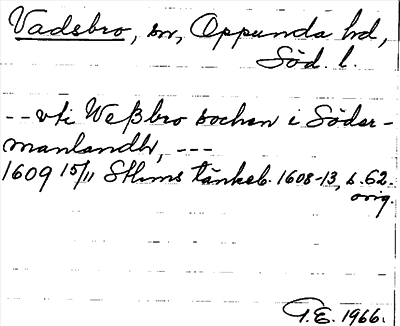 Vadsbro, sn, Oppunda hd,
Söd. l.
-- vti Weßbro sochen i Söder-
manlandh, ---
1609 15/11 Sthms tänkeb. 1608-13, s. 62.
orig.
G.E. 1966.